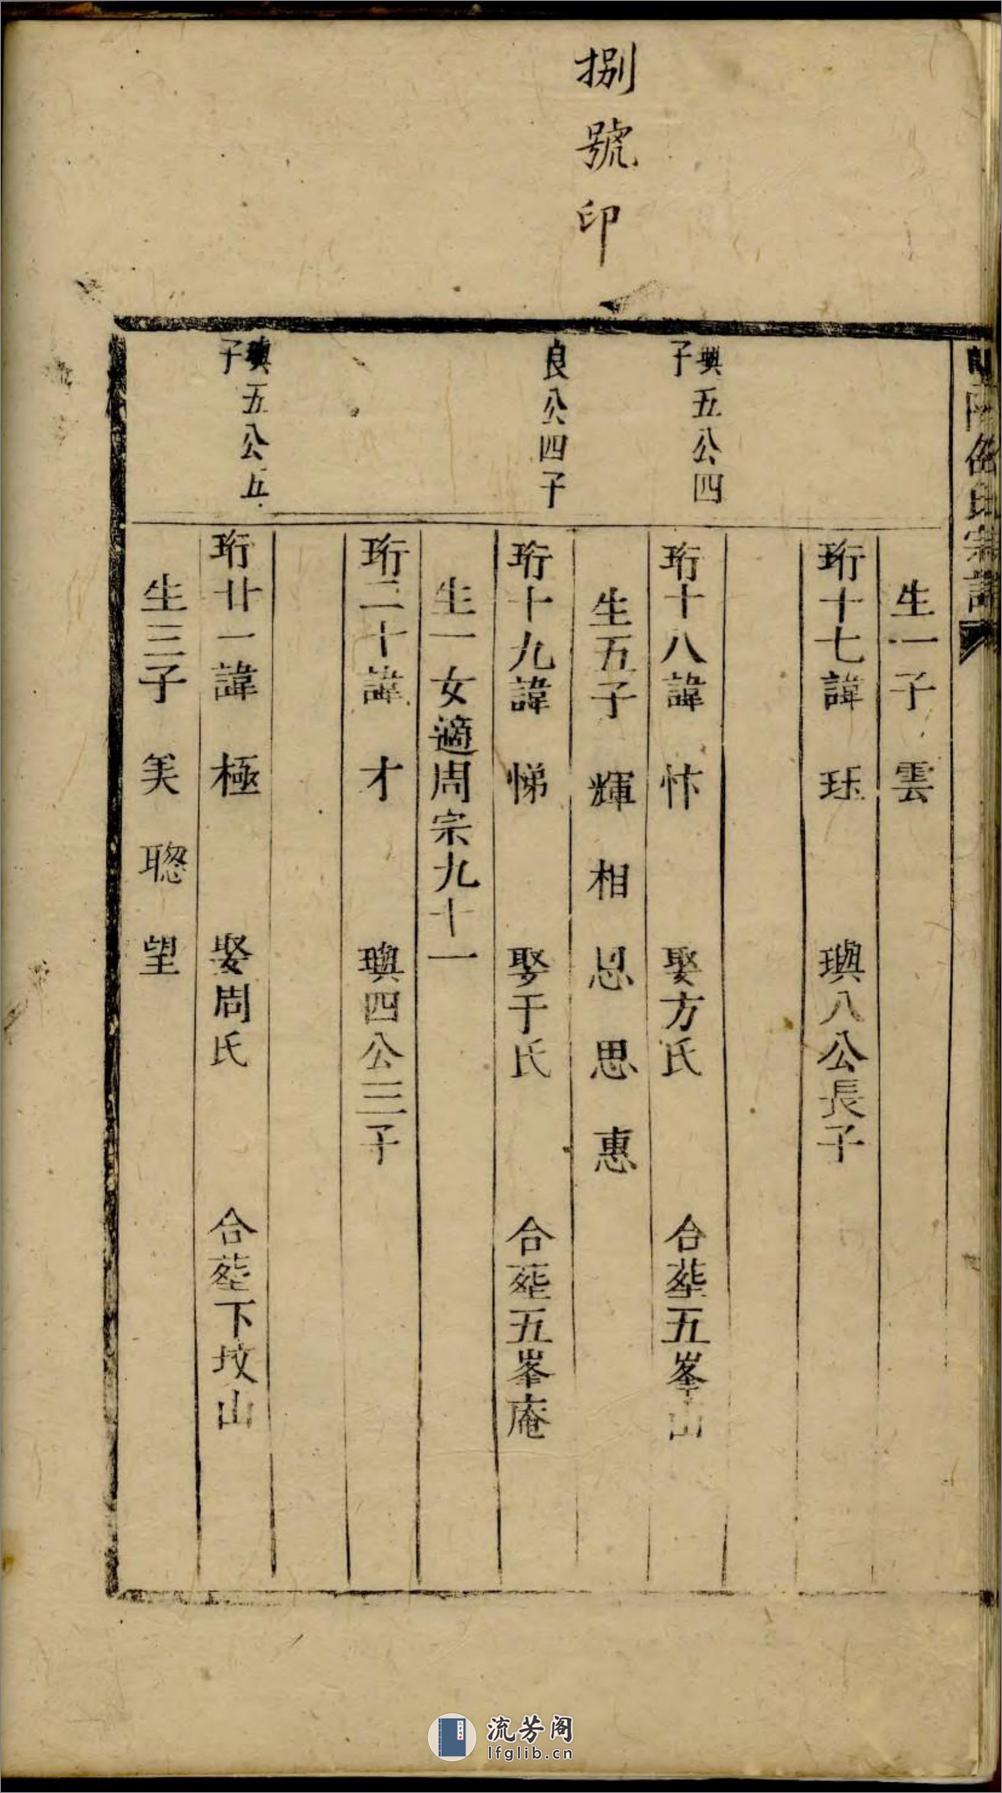 捌號印
生一子雲
珩十七諱珏 璵八公長子
璵五公四子
珩十八諱忭 娶方氏 合塟五峯山
生五子 輝 相 恩 思 惠
良公四子
珩十九諱悌 娶于氏 合塟五峯庵
生一女適周宗九十一
珩二十諱才 璵四公三子
璵五公五子
珩廿一諱極 娶周氏 合塟下坟山
生三子 美 聰 望
流芳阁
lfglib.cn